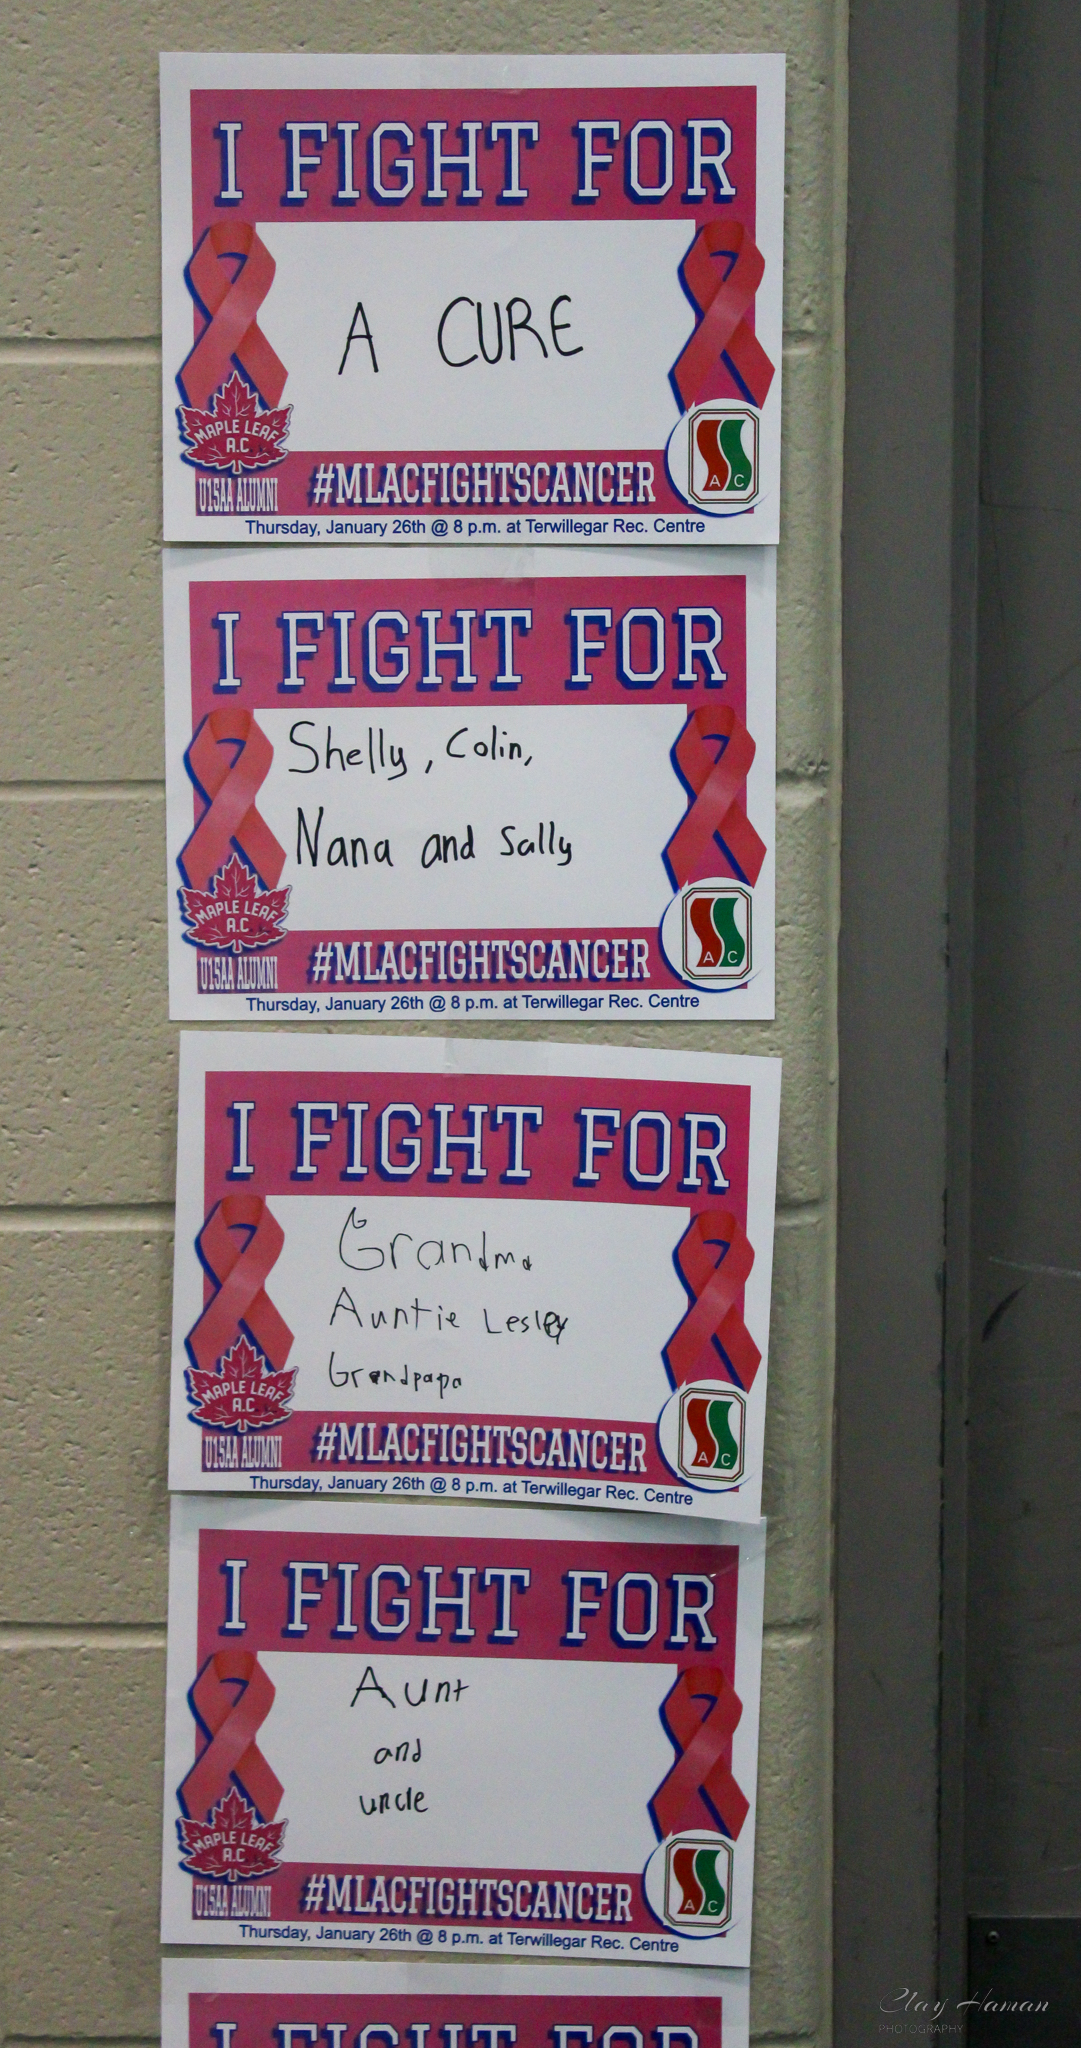 I FIGHT FOR
A CURE
MAPLE LEAF
A.C
U15AA ALUMNI
#MLACFIGHTSCANCER
A C
Thursday, January 26th @ 8 p.m. at Terwillegar Rec. Centre
I FIGHT FOR
Shelly, Colin,
Nana and Sally
MAPLE LEAF
A.C
U15AA ALUMNI
#MLACFIGHTSCANCER
A C
Thursday, January 26th @ 8 p.m. at Terwillegar Rec. Centre
I FIGHT FOR
Grandma
Auntie Lesley
Grandpapa
MAPLE LEAF
A.C
U15AA ALUMNI
#MLACFIGHTSCANCER
A C
Thursday, January 26th @ 8 p.m. at Terwillegar Rec. Centre
I FIGHT FOR
Aunt
and
uncle
MAPLE LEAF
A.C
U15AA ALUMNI
#MLACFIGHTSCANCER
A C
Thursday, January 26th @ 8 p.m. at Terwillegar Rec. Centre
I FIGHT FOR
Clay Haman
PHOTOGRAPHY